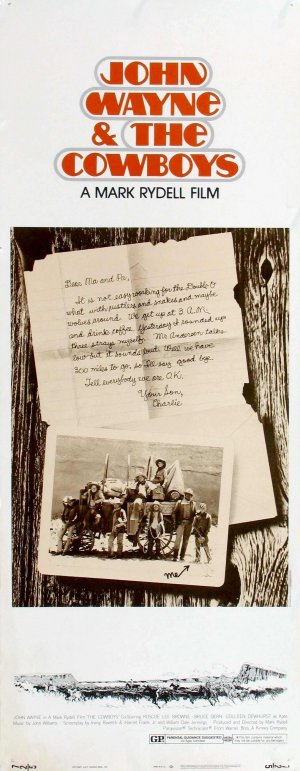 JOHN
WAYNE
& THE
COWBOYS
A MARK RYDELL FILM
Dear Ma and Pa,
It is not easy working for the Double O
what with rustlers and snakes and maybe
wolves around. We get up at 3 A.M.
and drink coffee. Yesterday I rounded up
three strays myself. Mr. Andersen talks
low but it sounds loud. Well we have
300 miles to go, so I'll say good bye.
Tell everybody we are O.K.
Your Son,
Charlie
me
JOHN WAYNE in A Mark Rydell Film THE COWBOYS Co-Starring ROSCOE LEE BROWNE · BRUCE DERN COLLEEN DEWHURST as Kate
Music by John Williams · Screenplay by Irving Ravetch & Harriet Frank, Jr. and William Dale Jennings · Produced and Directed by Mark Rydell
Panavision® Technicolor® From Warner Bros. A Kinney Company
GP PARENTAL GUIDANCE SUGGESTED